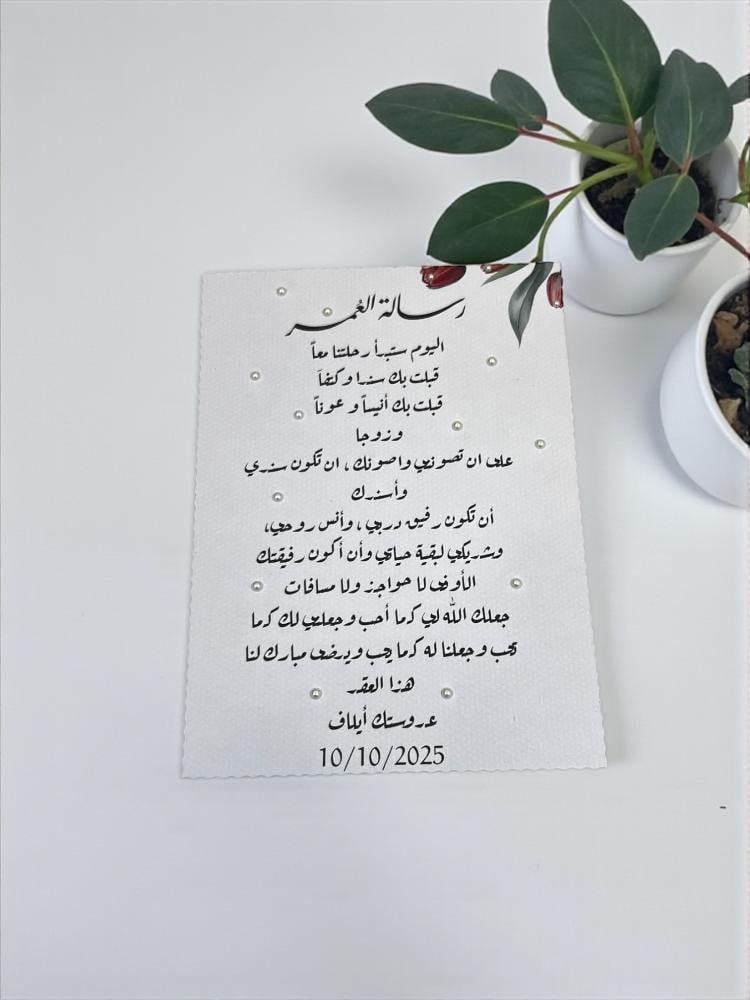 رسالة العُمر
اليوم ستبدأ رحلتنا معاً
قبلت بك سندا وكتفاً
قبلت بك أنيساً و عوناً
وزوجا
على ان تصونني واصونك ، ان تكون سندي
وأسندك
أن تكون رفيق دربي ، وأنس روحي،
وشريكي لبقية حياتي وأن أكون رفيقتك
الأوفى لا حواجز ولا مسافات
جعلك الله لي كما أحب وجعلني لك كما
تحب وجعلنا له كما يحب ويرضى مبارك لنا
هذا العقد
عروستك أيلاف
10/10/2025